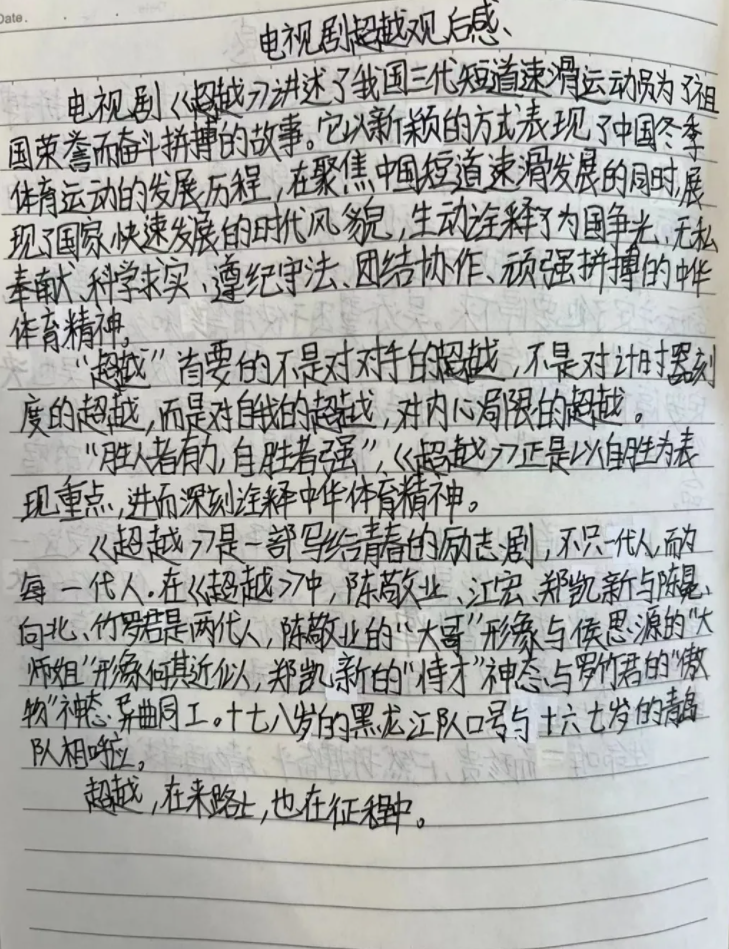 Date.
电视剧超越观后感、
电视剧《超越》讲述了我国三代短道速滑运动员为了祖
国荣誉而奋斗拼搏的故事。它以新颖的方式表现了中国冬季
体育运动的发展历程,在聚焦中国短道速滑发展的同时,展
现了国家快速发展的时代风貌,生动诠释了为国争光、无私
奉献、科学求实、遵纪守法、团结协作、顽强拼搏的中华
体育精神。
“超越”首要的不是对对手的超越,不是对计时器刻
度的超越,而是对自我的超越,对内心局限的超越。
“胜人者有力,自胜者强”,《超越》正是以自胜为表
现重点,进而深刻诠释中华体育精神。
《超越》是一部写给青春的励志剧,不只一代人,而为
每一代人。在《超越》中,陈敬业、江宏、郑凯新与陈冕、
向北、竹罗君是两代人,陈敬业的“大哥”形象与侯思源的“大
师姐”形象何其近似,郑凯新的“恃才”神态与罗竹君的“傲
物”神态异曲同工。十七八岁的黑龙江队口号与十六七岁的青岛
队相呼应。
超越,在来路上,也在征程中。